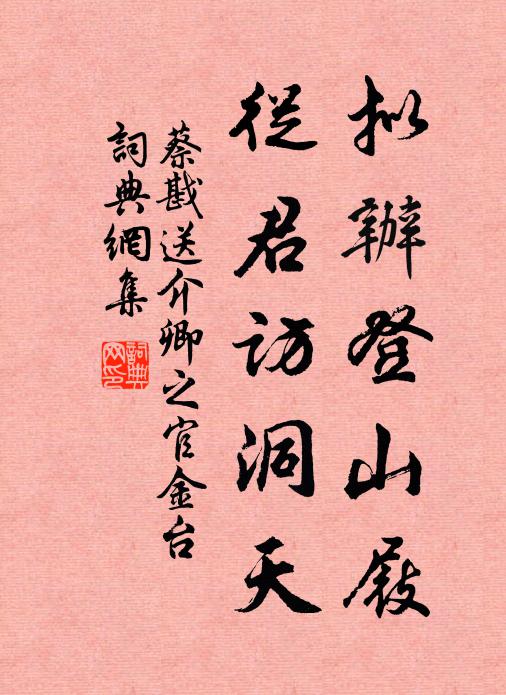 拟辦登山屐
從君訪洞天
蔡戡送介卿之官金台
詞典網集
詞典网印